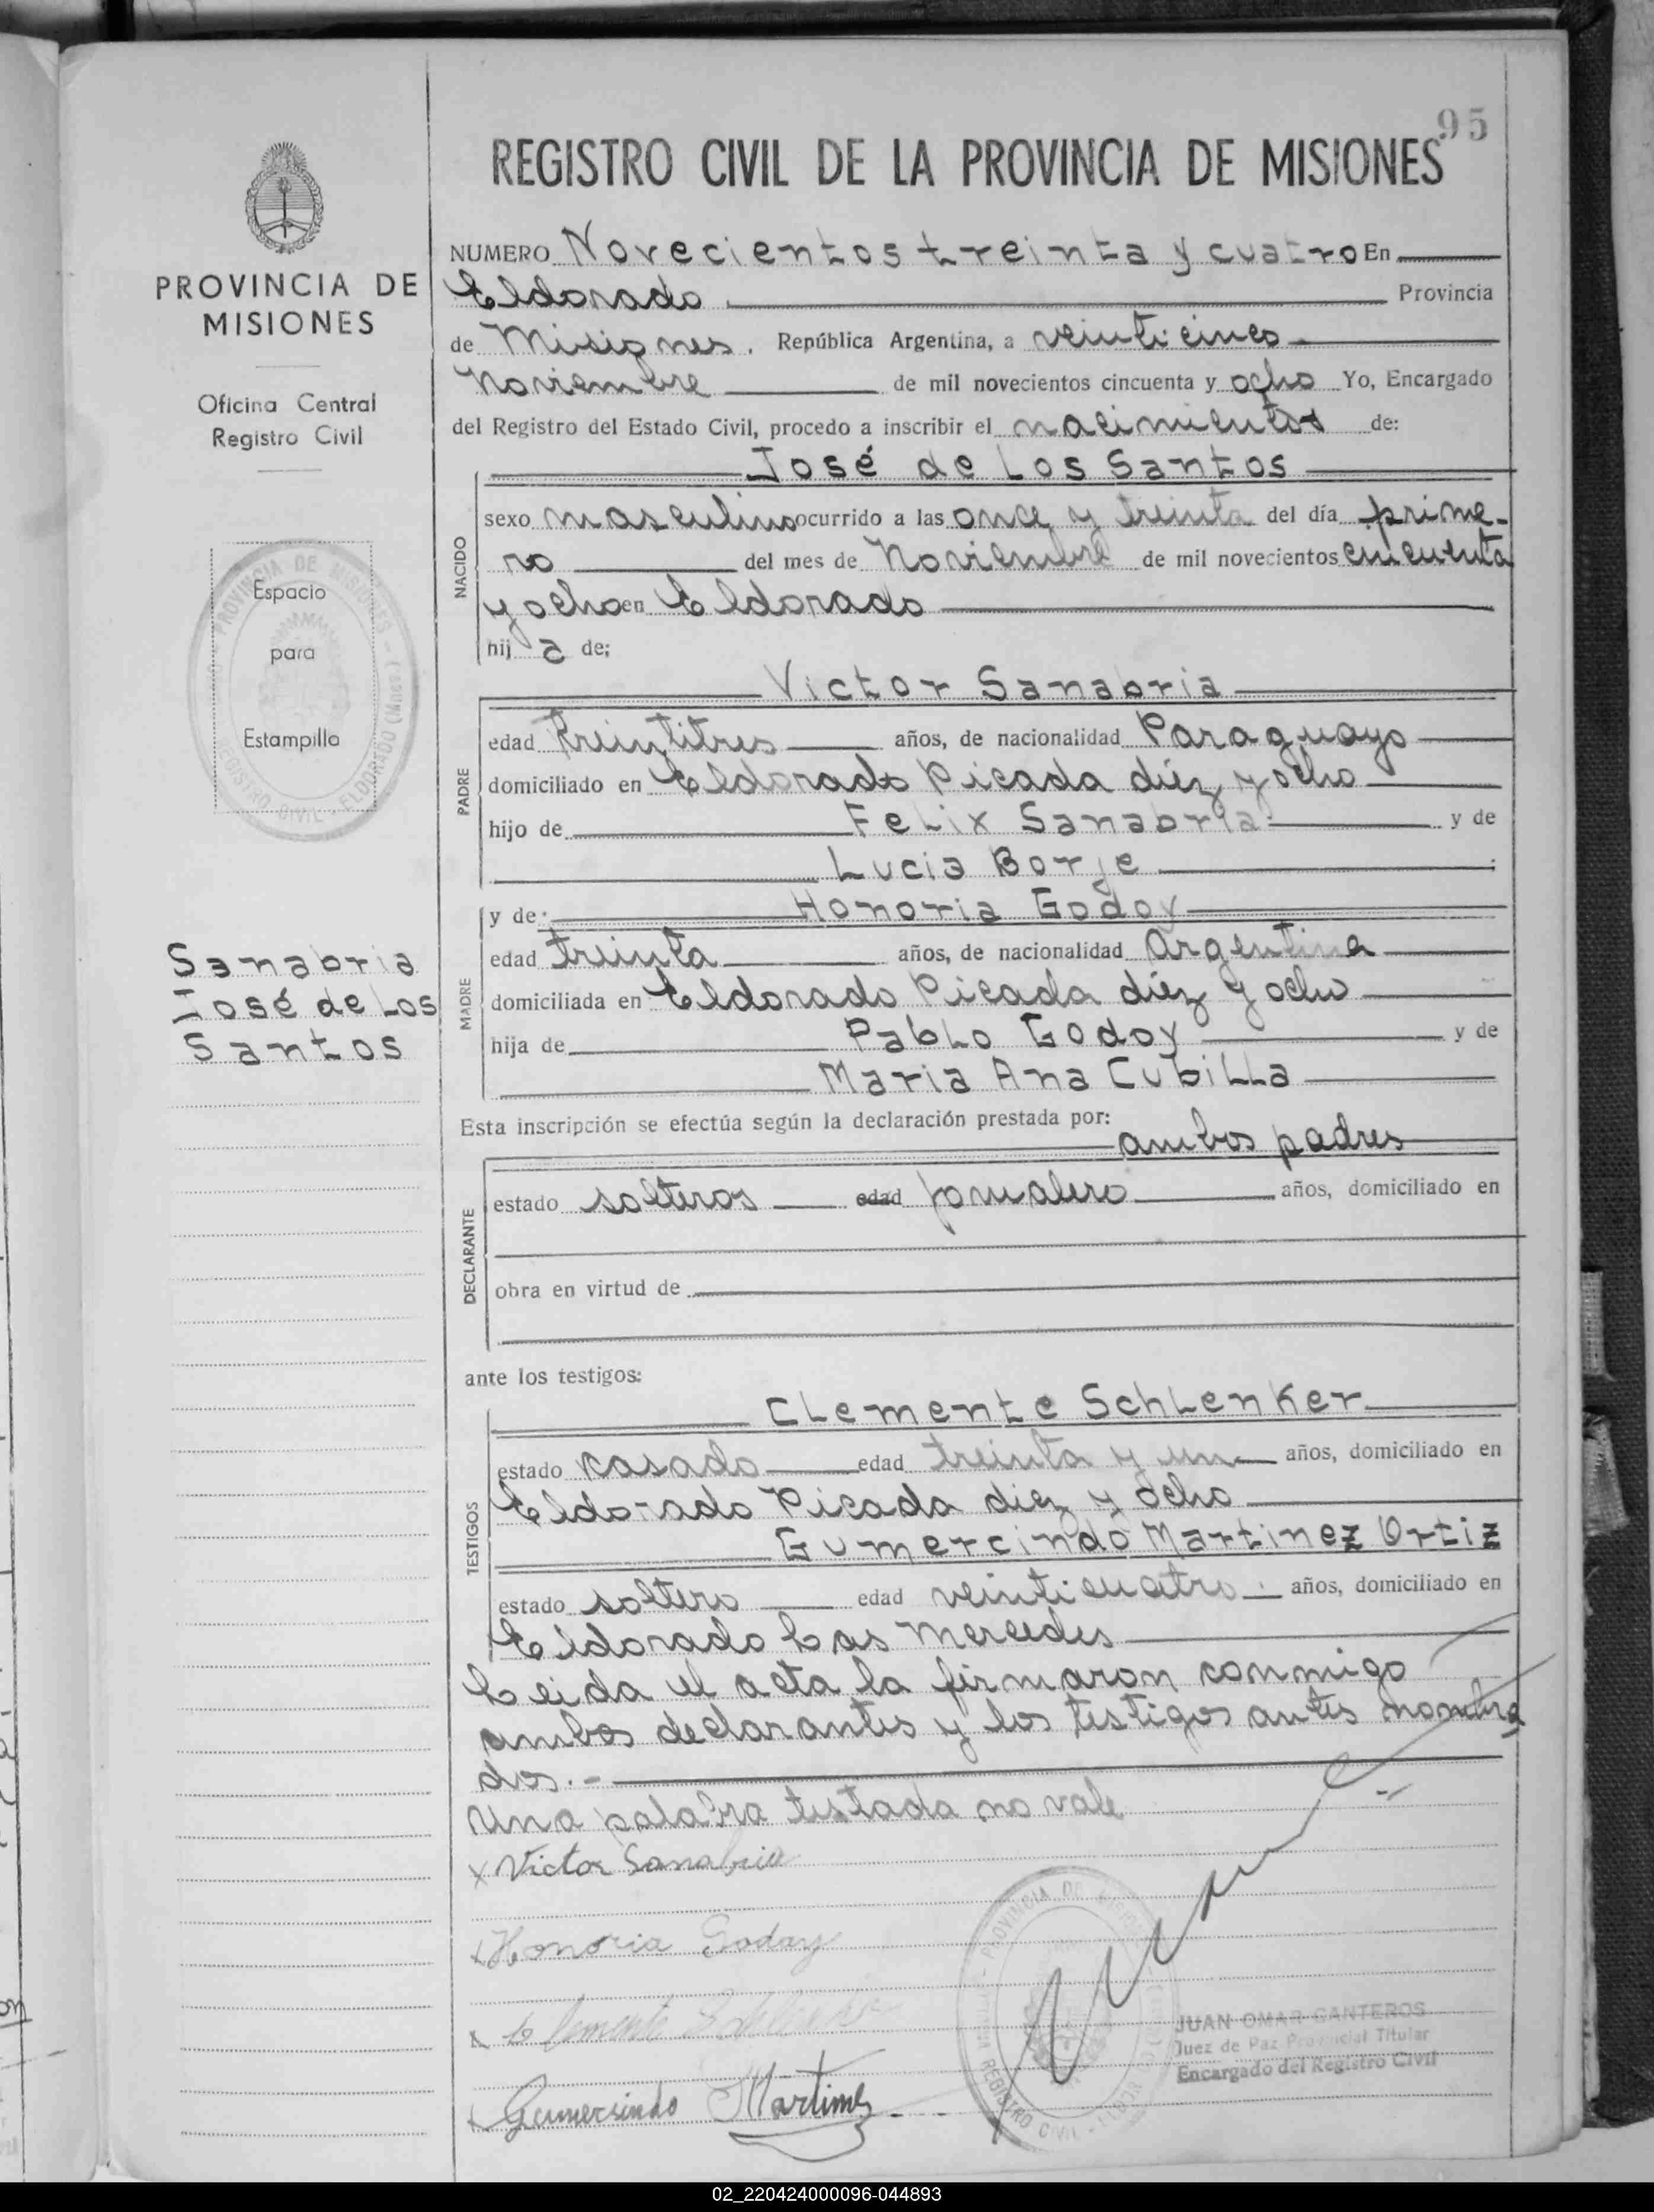 95
REGISTRO CIVIL DE LA PROVINCIA DE MISIONES
PROVINCIA DE
MISIONES
Oficina Central
Registro Civil
Espacio
para
Estampilla
Sanabria
José de Los
Santos
NUMERO Novecientos treinta y cuatro En
Eldorado Provincia
de Misiones. República Argentina, a veinticinco
Noviembre de mil novecientos cincuenta y ocho Yo, Encargado
del Registro del Estado Civil, procedo a inscribir el nacimiento de:
José de Los Santos
NACIDO
sexo masculino ocurrido a las once y treinta del día prime-
ro del mes de Noviembre de mil novecientos cincuenta
y ocho en Eldorado
hij o de;
Victor Sanabria
PADRE
edad treintitres años, de nacionalidad Paraguayo
domiciliado en Eldorado Picada diéz y ocho
hijo de Felix Sanabria y de
Lucia Borje
y de: Honoria Godoy
MADRE
edad treinta años, de nacionalidad Argentina
domiciliada en Eldorado Picada diéz y ocho
hija de Pablo Godoy y de
Maria Ana Cubilla
Esta inscripción se efectúa según la declaración prestada por:
ambos padres
DECLARANTE
estado solteros edad jornalero años, domiciliado en
obra en virtud de
ante los testigos:
Clemente Schlenker
TESTIGOS
estado casado edad treinta y un años, domiciliado en
Eldorado Picada diez y ocho
Gumercindo Martinez Ortiz
estado soltero edad veinticuatro años, domiciliado en
Eldorado Las Mercedes
Leida el acta la firmaron conmigo
ambos declarantes y los testigos antes nombra
dos.-
Una palabra testada no vale
x Victor Sanabria
x Honoria Godoy
x Clemente Schlenker
x Gumersindo Martinez
JUAN OMAR CANTEROS
Juez de Paz Provincial Titular
Encargado del Registro Civil
02_220424000096-044893